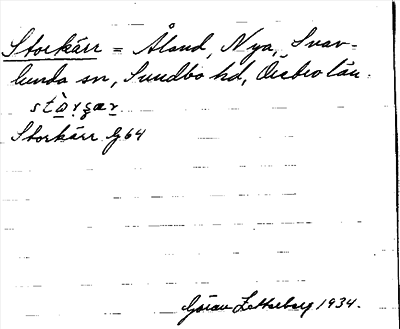 Storkärr = Åland, Nya, Svar-
lunda sn, Sundbo hd, Örebro län.
Storkärr G64
Göran Zetterberg 1934.